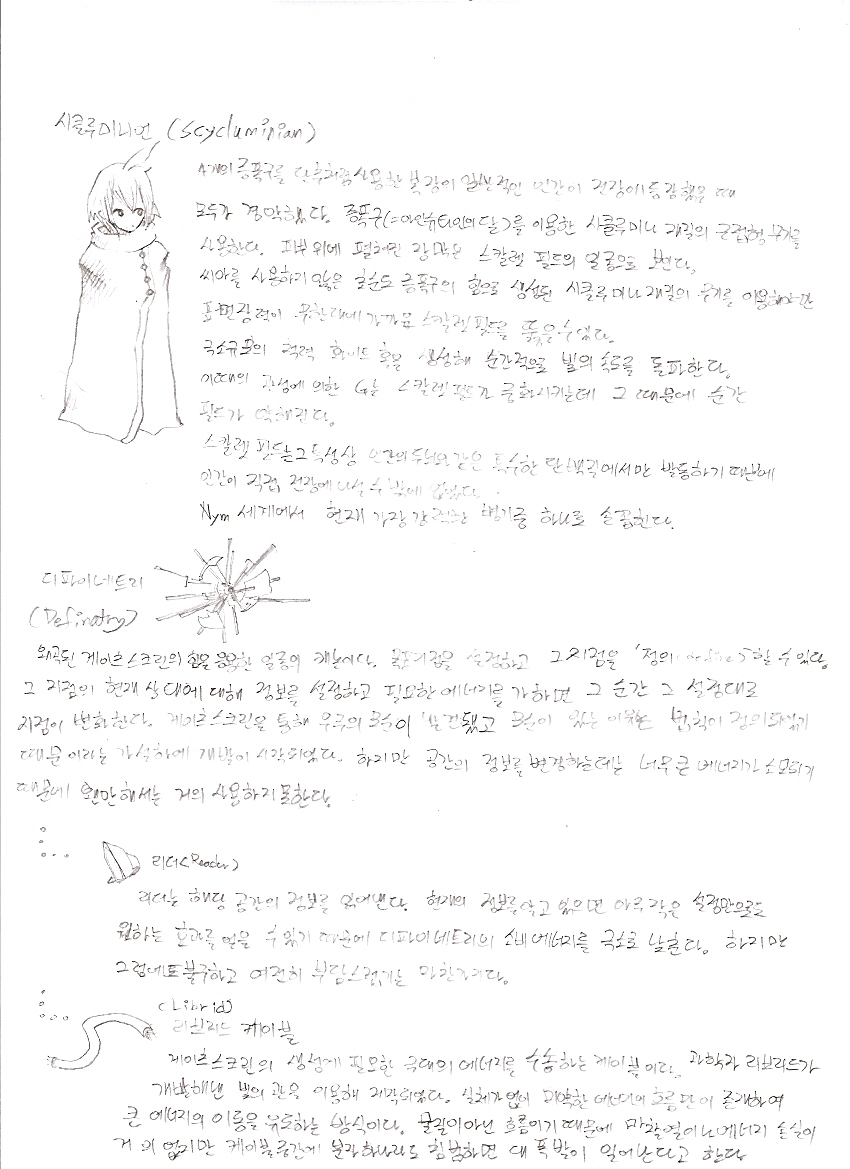 시클루미니언 (Scycluminian)
4개의 증폭구를 단추처럼 사용한 복장이 일반적인 인간이 전장에 등장했을 때
모두가 경악했다. 증폭구(=아인슈타인의 달)를 이용한 시클루미나 재질의 근접형 무기를
사용한다. 피부 위에 펼쳐진 장막은 스칼렛 필드의 일종으로 보인다.
사용하지 않은 증폭구의 힘으로 생성된 시클루미나 재질의 무기를 이용해
표면장력이 무한대에 가까운 스칼렛 필드를 뚫을 수 있다.
극소규모의 척력 화이트 홀을 생성해 순간적으로 빛의 속도를 돌파한다.
이때의 관성에 의한 G는 스칼렛 필드가 중화시키는데 그 때문에 순간
필드가 약해진다.
스칼렛 필드는 그 특성상 인간의 두뇌와 같은 특수한 탄소체에서만 발동하기 때문에
인간이 직접 전장에 나설 수 밖에 없었다.
Nym 세계에서 현재 가장 강력한 병기중 하나로 손꼽힌다.
디파이네트리
(Definatry)
왜곡된 게이트 스크린의 힘을 응용한 일종의 캐논이다. 목표지점을 설정하고 그 지점을 '정의(define)' 할 수 있다.
그 지점의 현재 상태에 대해 정보를 설정하고 필요한 에너지를 가하면 그 순간 그 설정대로
지점이 변화한다. 게이트스크린을 통해 우주의 모순이 발견됐고 모순이 있는 이유는 법칙이 정의되었기
때문 이라는 가설하에 개발이 시작되었다. 하지만 공간의 정보를 변경하는데는 너무 큰 에너지가 소모되기
때문에 왠만해서는 거의 사용하지 못한다.
리더(Reader)
리더는 해당 공간의 정보를 읽어낸다. 현재의 정보를 알고 있으면 아주 작은 설정만으로도
원하는 효과를 얻을 수 있기 때문에 디파이네트리의 소비 에너지를 극소로 낮춘다. 하지만
그럼에도 불구하고 여전히 부담스럽기는 마찬가지다.
(Librid)
리브리드 케이블
게이트스크린의 생성에 필요한 극대의 에너지를 수송하는 케이블이다. 과학자 리브리드가
개발해낸 빛의 관을 이용해 제작되었다. 실체가 없이 미약한 에너지의 흐름만이 존재하여
큰 에너지의 이동을 유도하는 방식이다. 물질이 아닌 흐름이기 때문에 마찰열이나 에너지 손실이
거의 없지만 케이블 공간에 분자 하나라도 침범하면 대 폭발이 일어난다고 한다